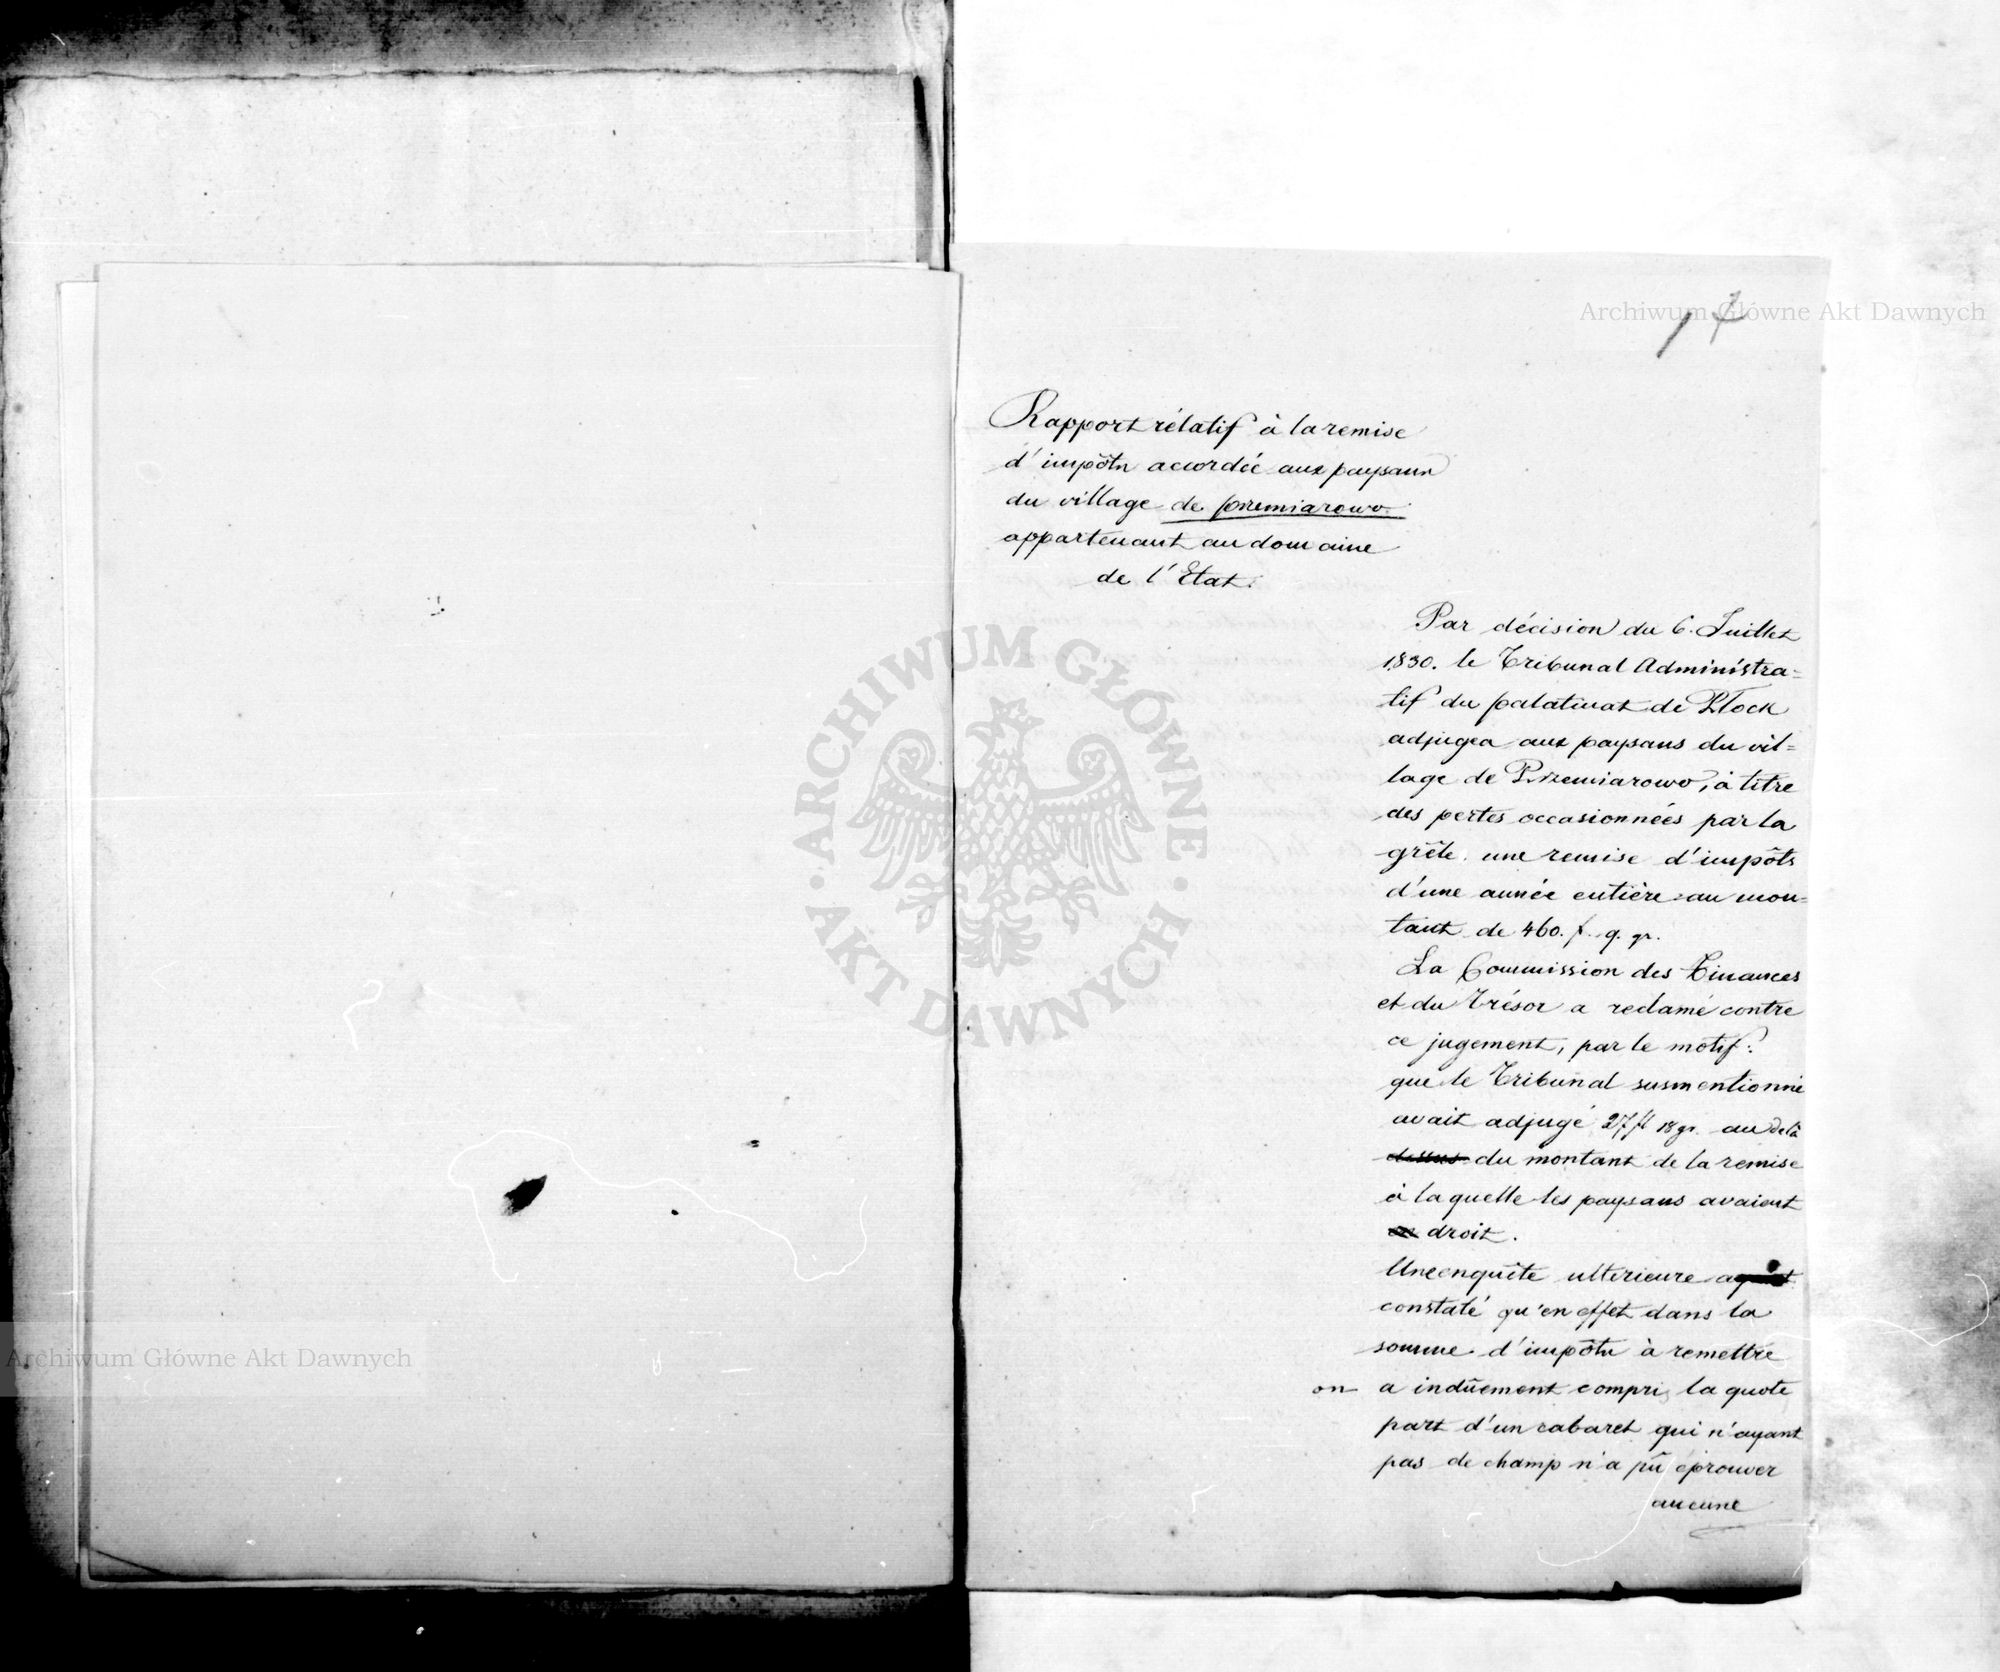 Archiwum Główne Akt Dawnych
Rapport rélatif à la remise
d'impôts accordée aux paysans
du village de przemiarowo
appartenant au domaine
de l'Etat.
Par décision du 6. Juillet
1830. le Tribunal Administra=
tif du palatinat de Płock
adjugea aux paysans du vil=
lage de Przemiarowo, à titre
des pertes occasionnées par la
grêle, une remise d'impôts
d'une année entière au mon=
tant de 460. f. 9. gr.
La Commission des Finances
et du Trésor a reclamé contre
ce jugement, par le motif:
que le Tribunal susmentionné
avait adjugé 27 fl 18 gr. au delà
dessus du montant de la remise
à la quelle les paysans avaient
droit.
Une enquête ultérieure a
constaté qu'en effet dans la
somme d'impôts à remettre
on a indûement compris la quote
part d'un cabaret qui n'ayant
pas de champ n'a pû éprouver
aucune
ARCHIWUM GŁÓWNE
AKT DAWNYCH
Archiwum Główne Akt Dawnych